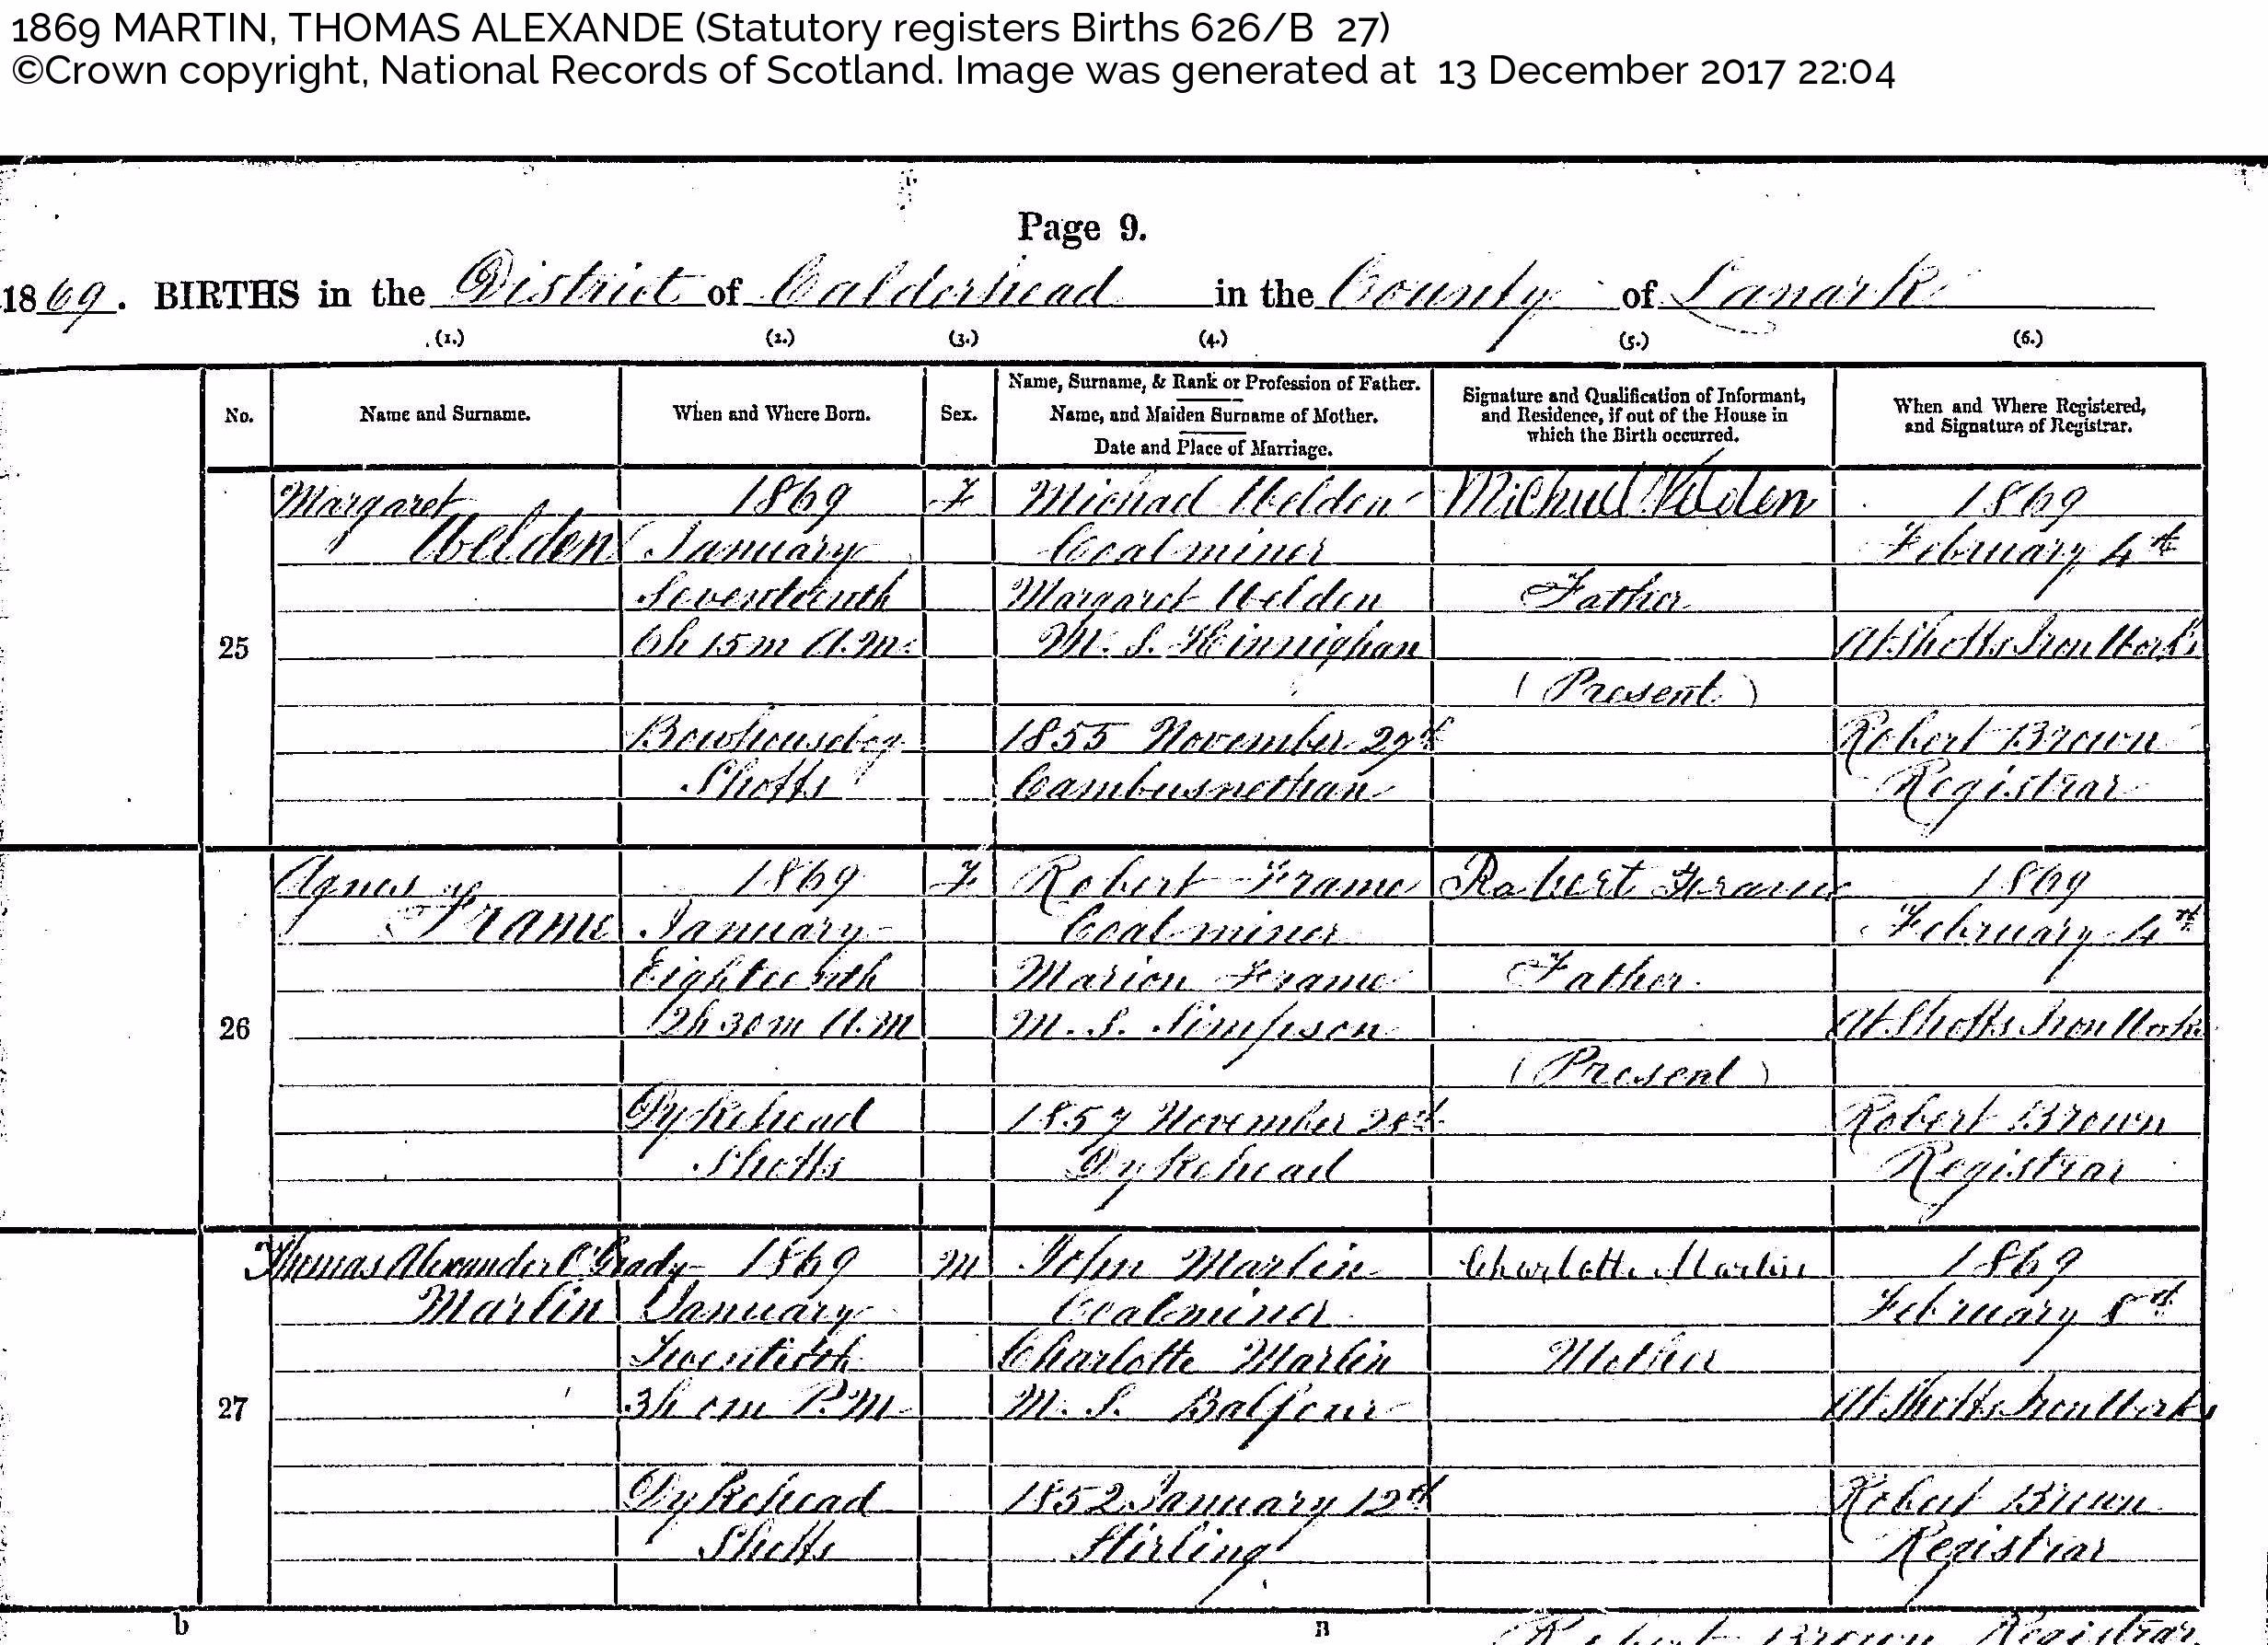 1869 MARTIN, THOMAS ALEXANDE (Statutory registers Births 626/B 27)
©Crown copyright, National Records of Scotland. Image was generated at 13 December 2017 22:04
Page 9.
1869. BIRTHS in the District of Calderhead in the County of Lanark
(1.) (2.) (3.) (4.) (5.) (6.)
No. Name and Surname. When and Where Born. Sex. Name, Surname, & Rank or Profession of Father. Name, and Maiden Surname of Mother. Date and Place of Marriage. Signature and Qualification of Informant, and Residence, if out of the House in which the Birth occurred. When and Where Registered, and Signature of Registrar.
Margaret 1869 F Michael Welden Michael Welden 1869
Welden January Coalminer February 4th
Seventeenth Margaret Welden Father
25 6h 15m A.M. M.S. Kinnighan At Shotts Iron Works
(Present)
Bowhousebog 1855 November 29th Robert Brown
Shotts Cambusnethan Registrar
Agnes 1869 F Robert Frame Robert Frame 1869
Frame January Coalminer February 4th
Eighteenth Marion Frame Father
26 2h 30m A.M M.S. Simpson At Shotts Iron Works
(Present)
Dykehead 1857 November 28th Robert Brown
Shotts Dykehead Registrar
Thomas Alexander O'Grady 1869 M John Martin Charlotte Martin 1869
Martin January Coalminer February 8th
Twentieth Charlotte Martin Mother
27 3h 0m P.M M.S. Balfour At Shotts Iron Works
Dykehead 1852 January 12th Robert Brown
Shotts Stirling Registrar
b B Robert Brown Registrar